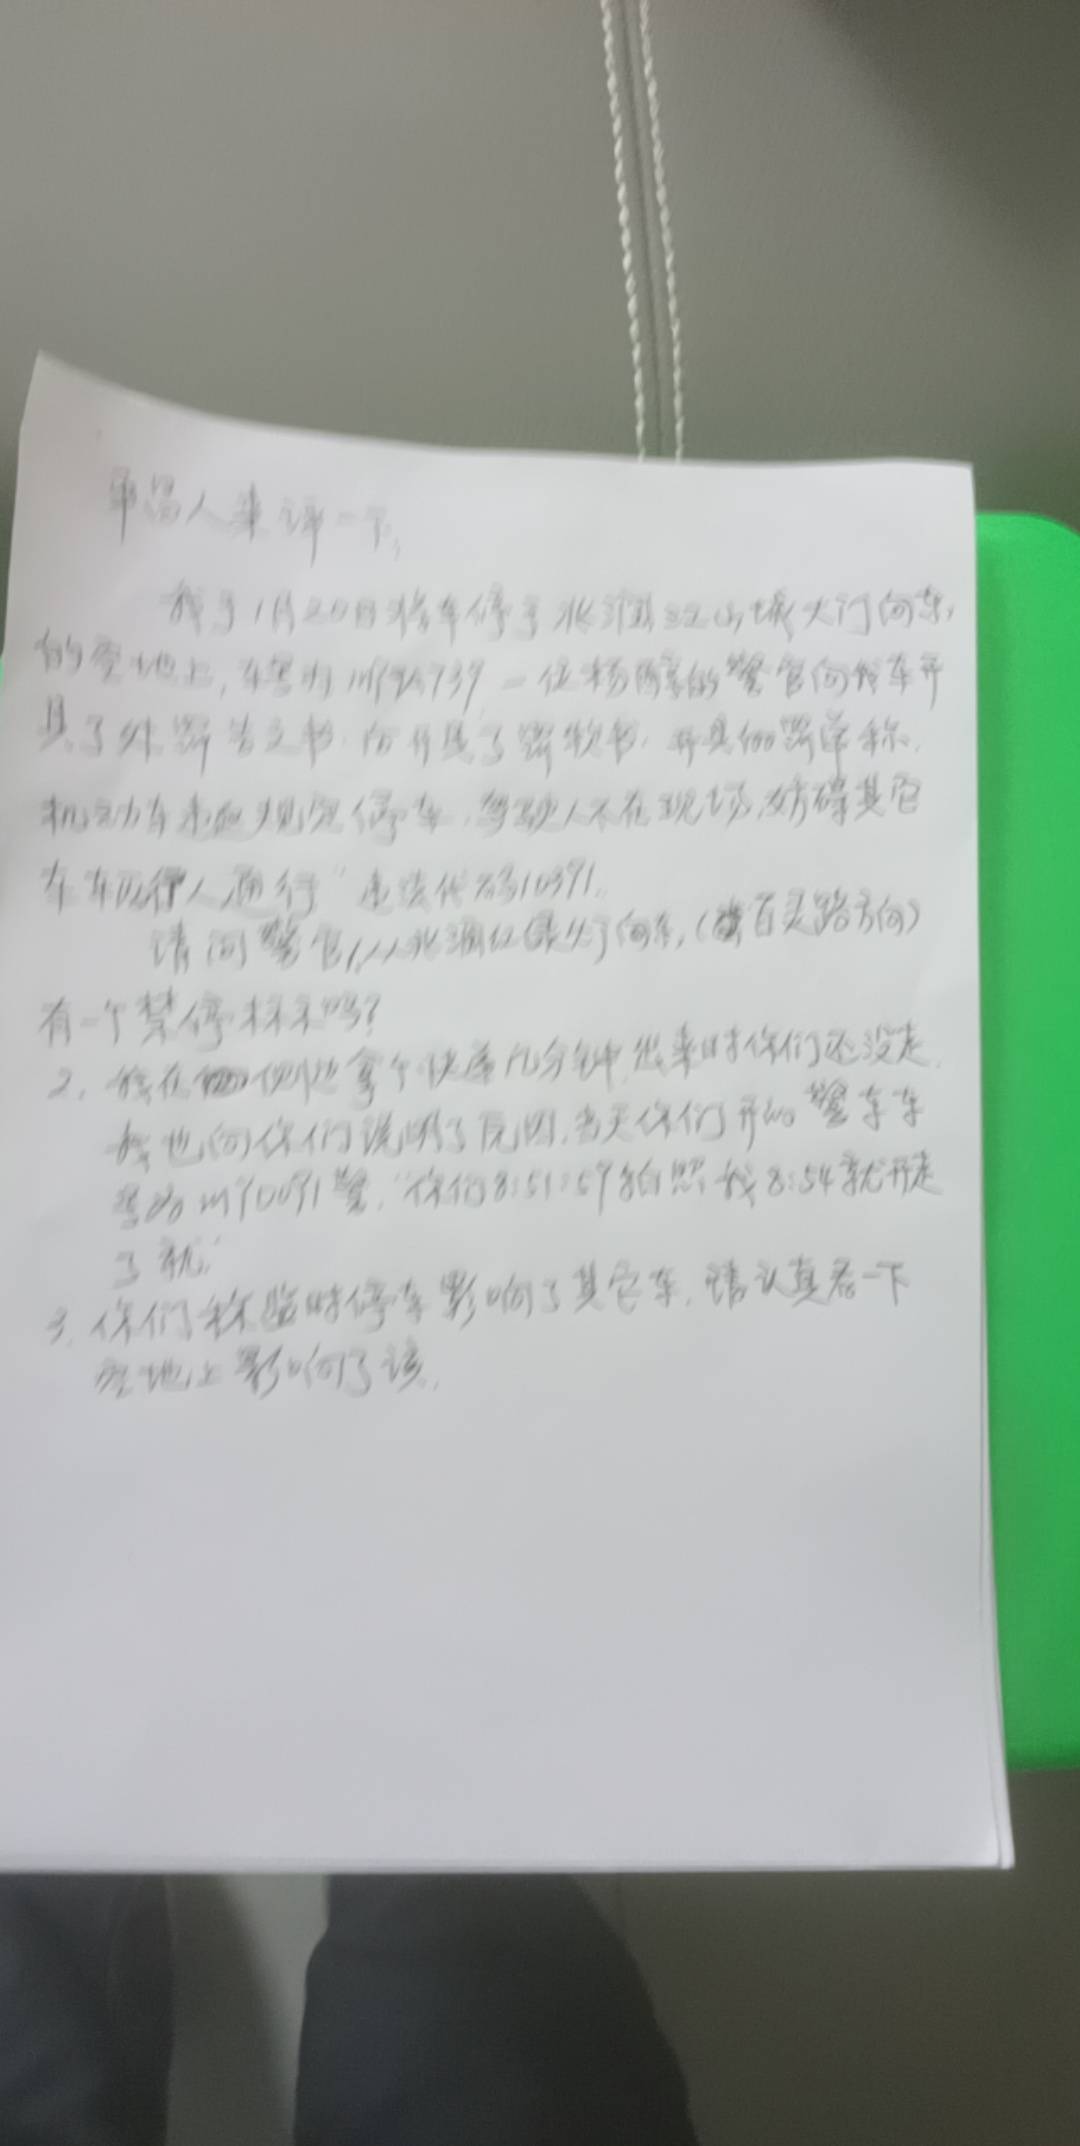 人来评一下,
我于1月20日将车停于北江山城大门向东,
的空地上,车号为739 一位杨的警官向我车开
具了处罚告之书 后开具了罚款书, 开具的罚单称,
机动车违反规定停车,驾驶人不在现场,妨碍其它
车车行人通行" 违法代码10391.
请问警官1,从北向东,(百灵路方向)
有一个禁停标示吗?
2, 我在侧边拿个快递几分钟,出来时你们还没走,
我也向你们说明了原因,当天你们开的警车车
号为川90091警,"你们8:51:59拍照 我8:54就开走
了就"
3, 你们称临时停车影响了其它车,请认真看一下
空地上影响了谁.